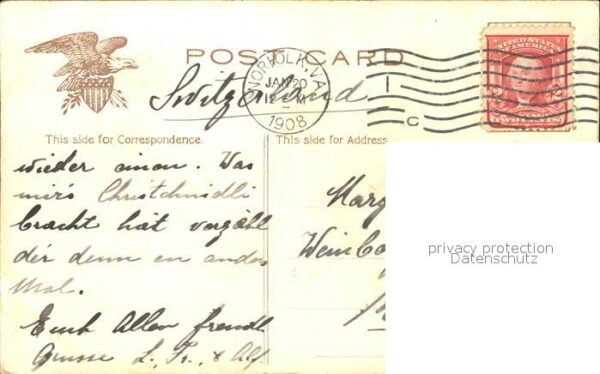 POST CARD
Switzerland
NORFOLK, VA.
JAN 20
12 M
1908
C
UNITED STATES OF AMERICA
TWO CENTS
This side for Correspondence.
This side for Address
wieder einen. Was
mir's Christchindli
bracht hät verzähl
der denn en anders
Mal.
Euch Allen freundl
Grüsse L., Fr., & Alf
Marg
Weinb
privacy protection
Datenschutz